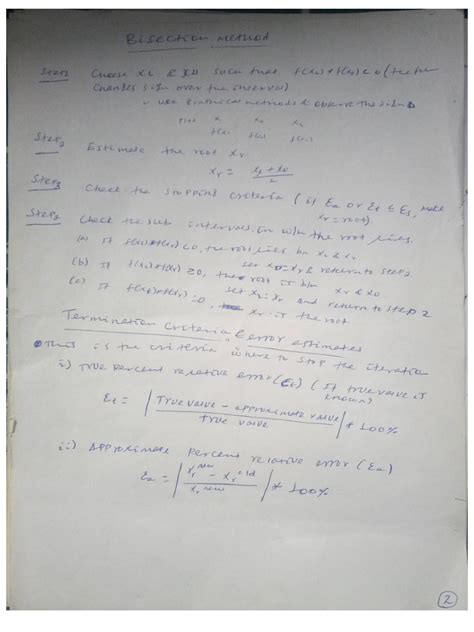 Bisection method
Step1 Choose xL & xU such that f(xL)*f(xU)<0 (the fun
changes sign over the interval)
use graphical methods & observe the sign
Step2 Estimate the root xr
xr = xL+xU / 2
Step3 Check the stopping criteria (if Ea or Et ≤ Es, make
xr = root).
Step4 Check the sub intervals in w/h the root lies.
(a) if f(xL)*f(xr) <0, the root lies b/n xL & xr
set xU=xr & return to step2
(b) if f(xL)*f(xr) >0, the root is b/n xr & xU
set xL=xr and return to step 2
(c) if f(xL)*f(xr) =0, xr is the root
Termination criteria & error estimates
This is the criteria where to stop the iteration
i) True percent relative error (Et) (if true value is
known)
Et = | True value - approximate value / True value | * 100%
ii) Approximate percent relative error (Ea)
Ea = | xr new - xr old / xr new | * 100%
2